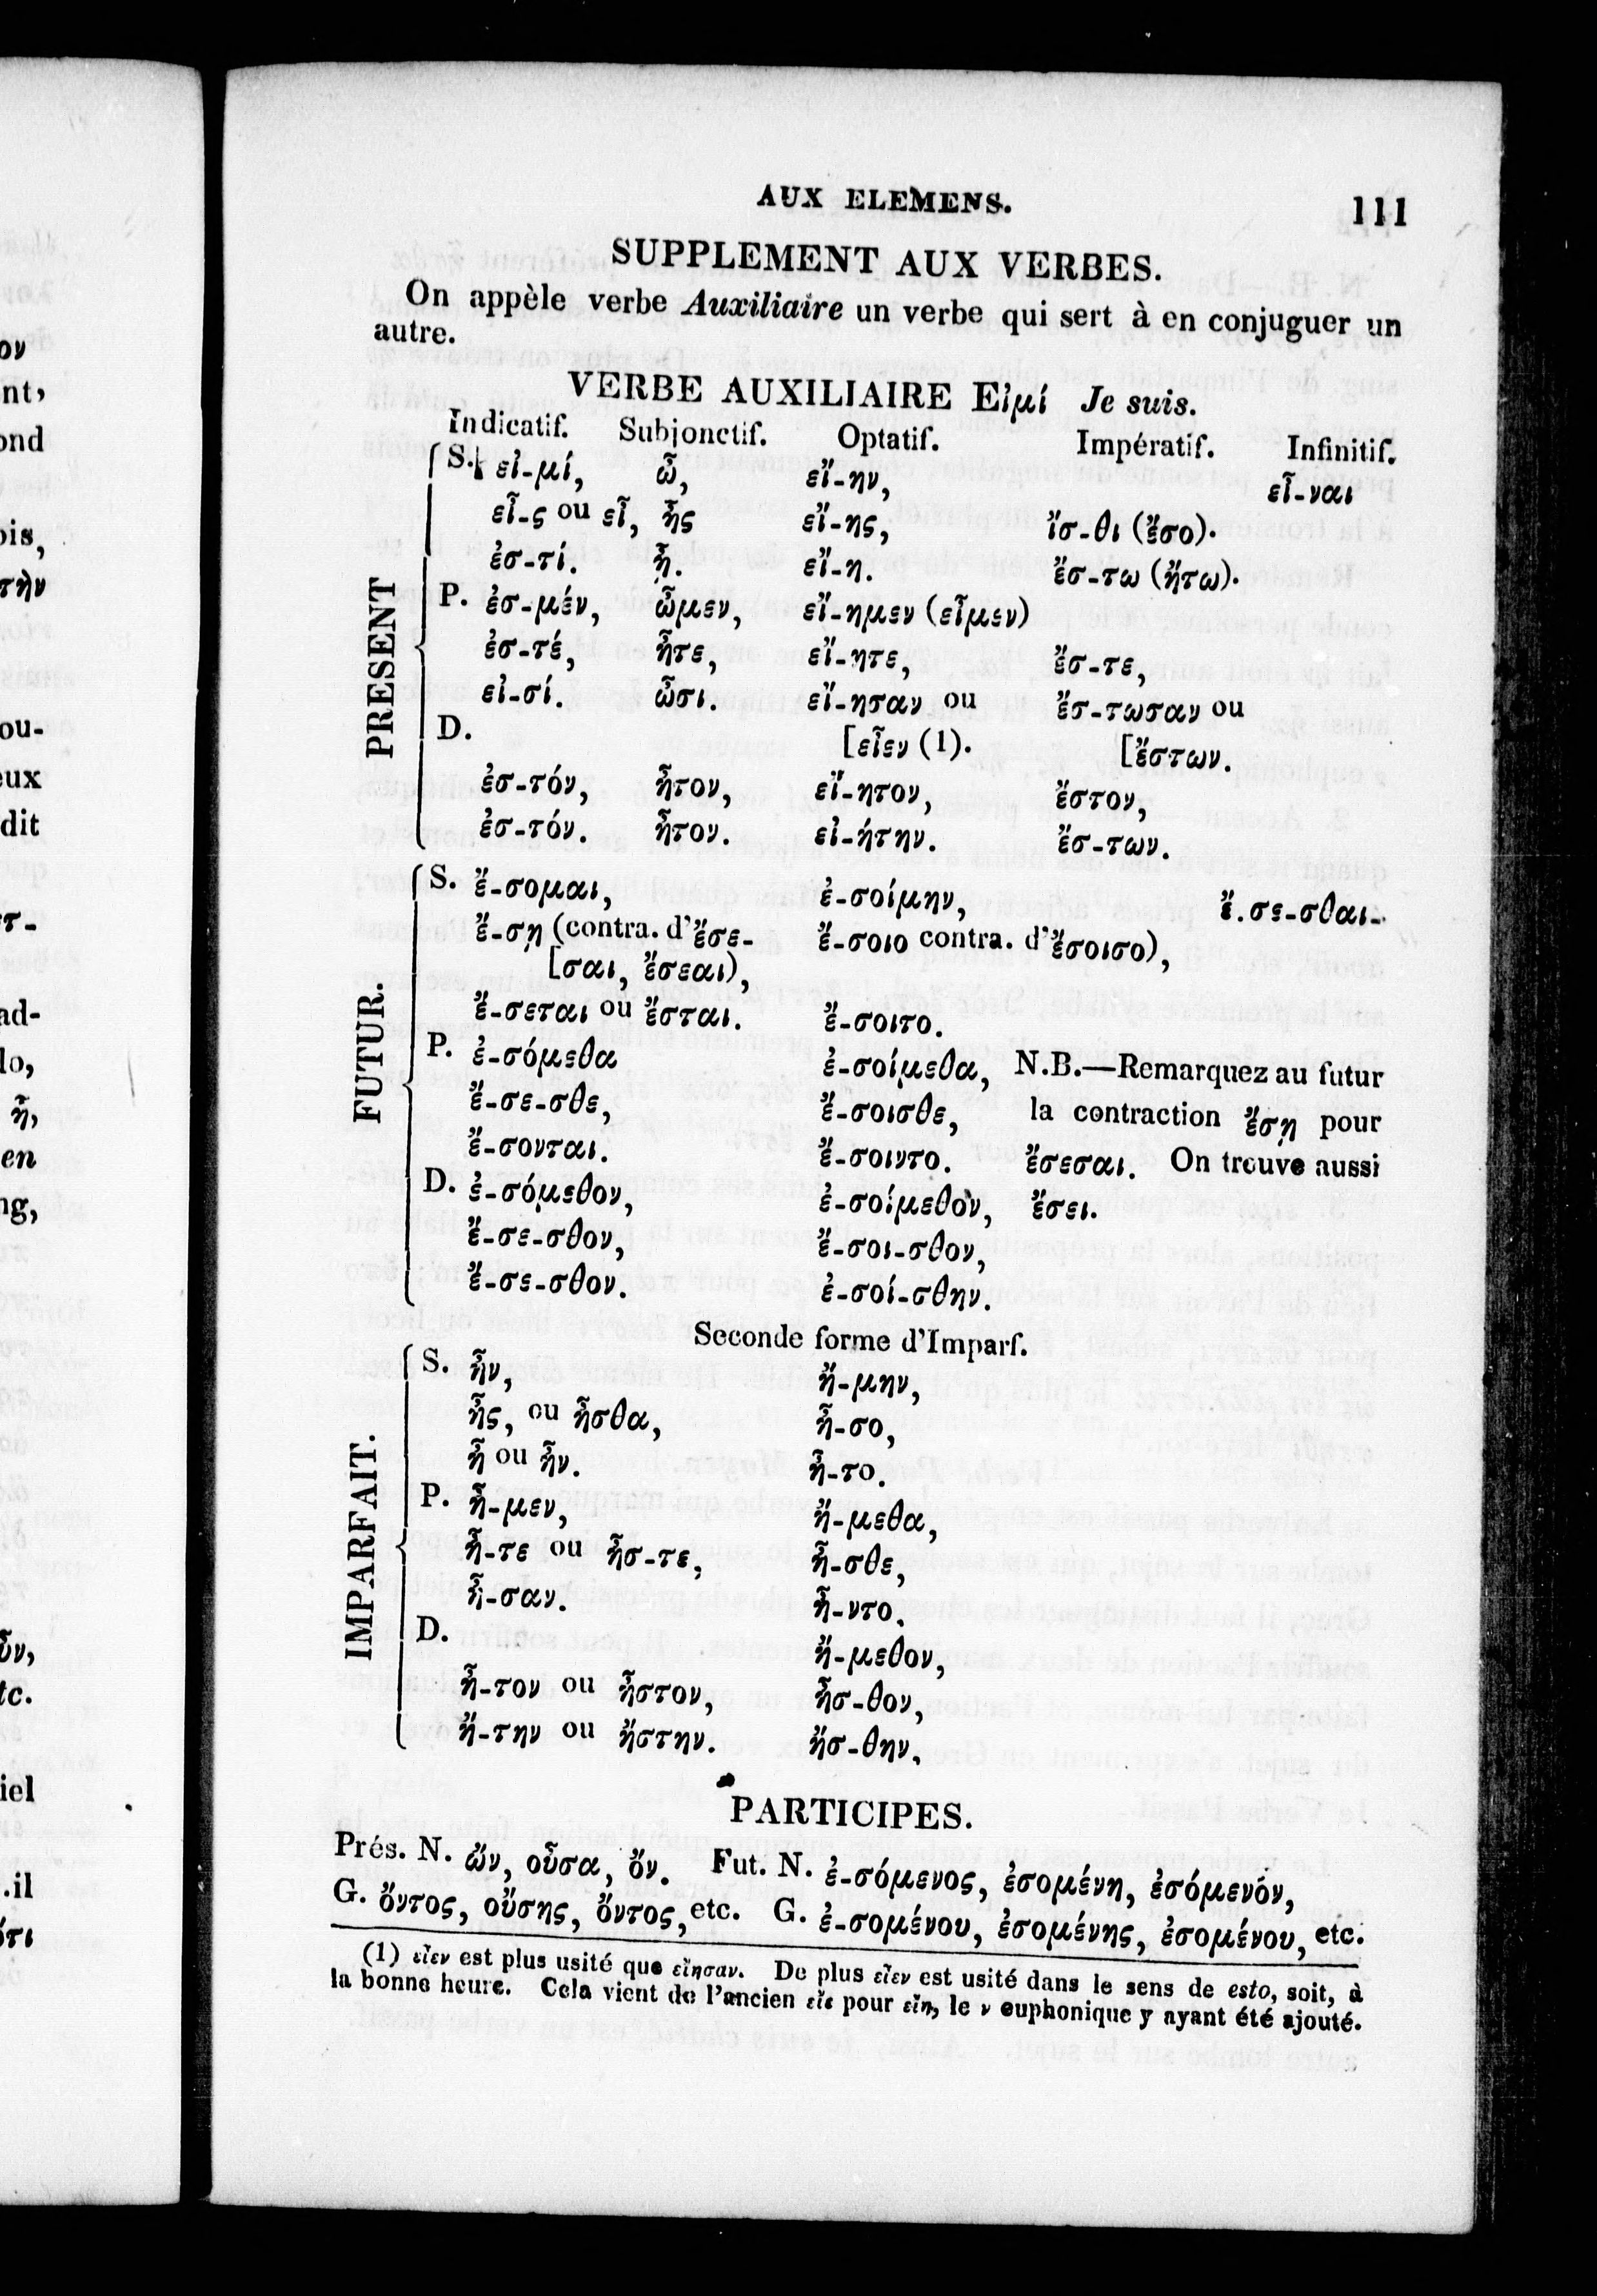 AUX ELEMENS. 111
SUPPLEMENT AUX VERBES.
On appèle verbe Auxiliaire un verbe qui sert à en conjuguer un
autre.
VERBE AUXILIAIRE Εἰμί Je suis.
Indicatif. Subjonctif. Optatif. Impératif. Infinitif.
PRESENT
S. εἰ-μί, ὦ, εἴ-ην, εἶ-ναι
εἶ-ς ou εἶ, ἦς εἴ-ης, ἴσ-θι (ἔσο).
ἐσ-τί. ᾖ. εἴ-η. ἔσ-τω (ἤτω).
P. ἐσ-μέν, ὦμεν, εἴ-ημεν (εἶμεν)
ἐσ-τέ, ἦτε, εἴ-ητε, ἔσ-τε,
εἰ-σί. ὦσι. εἴ-ησαν ou ἔσ-τωσαν ou
D. [εἶεν (1). [ἔστων.
ἐσ-τόν, ἦτον, εἴ-ητον, ἔστον,
ἐσ-τόν. ἦτον. εἰ-ήτην. ἔσ-των.
FUTUR.
S. ἔ-σομαι, ἐ-σοίμην, ἔ.σε-σθαι.
ἔ-σῃ (contra. d'ἔσε- ἔ-σοιο contra. d'ἔσοισο),
[σαι, ἔσεαι),
ἔ-σεται ou ἔσται. ἔ-σοιτο.
P. ἐ-σόμεθα ἐ-σοίμεθα, N.B.—Remarquez au futur
ἔ-σε-σθε, ἔ-σοισθε, la contraction ἔσῃ pour
ἔ-σονται. ἔ-σοιντο. ἔσεσαι. On trouve aussi
D. ἐ-σόμεθον, ἐ-σοίμεθον, ἔσει.
ἔ-σε-σθον, ἔ-σοι-σθον,
ἔ-σε-σθον. ἐ-σοί-σθην.
Seconde forme d'Imparf.
IMPARFAIT.
S. ἦν, ἤ-μην,
ἦς, ou ἦσθα, ἦ-σο,
ἦ ou ἦν. ἦ-το.
P. ἦ-μεν, ἤ-μεθα,
ἦ-τε ou ἦσ-τε, ἦ-σθε,
ἦ-σαν. ἦ-ντο.
D. ἤ-μεθον,
ἦ-τον ou ἦστον, ἦσ-θον,
ἤ-την ou ἤστην. ἤσ-θην.
PARTICIPES.
Prés. N. ὤν, οὖσα, ὄν. Fut. N. ἐ-σόμενος, ἐσομένη, ἐσόμενόν,
G. ὄντος, οὔσης, ὄντος, etc. G. ἐ-σομένου, ἐσομένης, ἐσομένου, etc.
(1) εἶεν est plus usité que εἴησαν. De plus εἶεν est usité dans le sens de esto, soit, à
la bonne heure. Cela vient de l'ancien εἶε pour εἴη, le ν euphonique y ayant été ajouté.